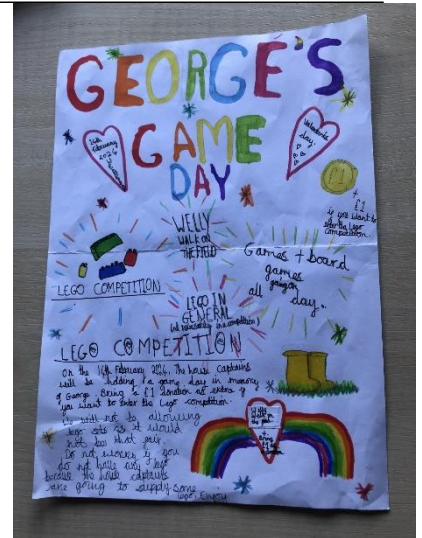 GEORGE'S
GAME
DAY
14th
February
2024
Valentine's
day
£1
+
£1
if you want to
enter the lego
competition
WELLY
WALK ON
THE FIELD
Games + board
games
going on
all day..
LEGO COMPETITION
LEGO IN
GENERAL
LEGO COMPETITION
On the 14th February 2024, The house captains
will be holding a game day in memory
of George. Bring a £1 donation as extra if
you want to enter the lego competition.
will not be allowing
box sets as it would
not be that fair.
Do not worry if you
do not have any lego
because the house captains
are going to supply some
lego. Enjoy
Welly
walk on
the
+
Bring
£1